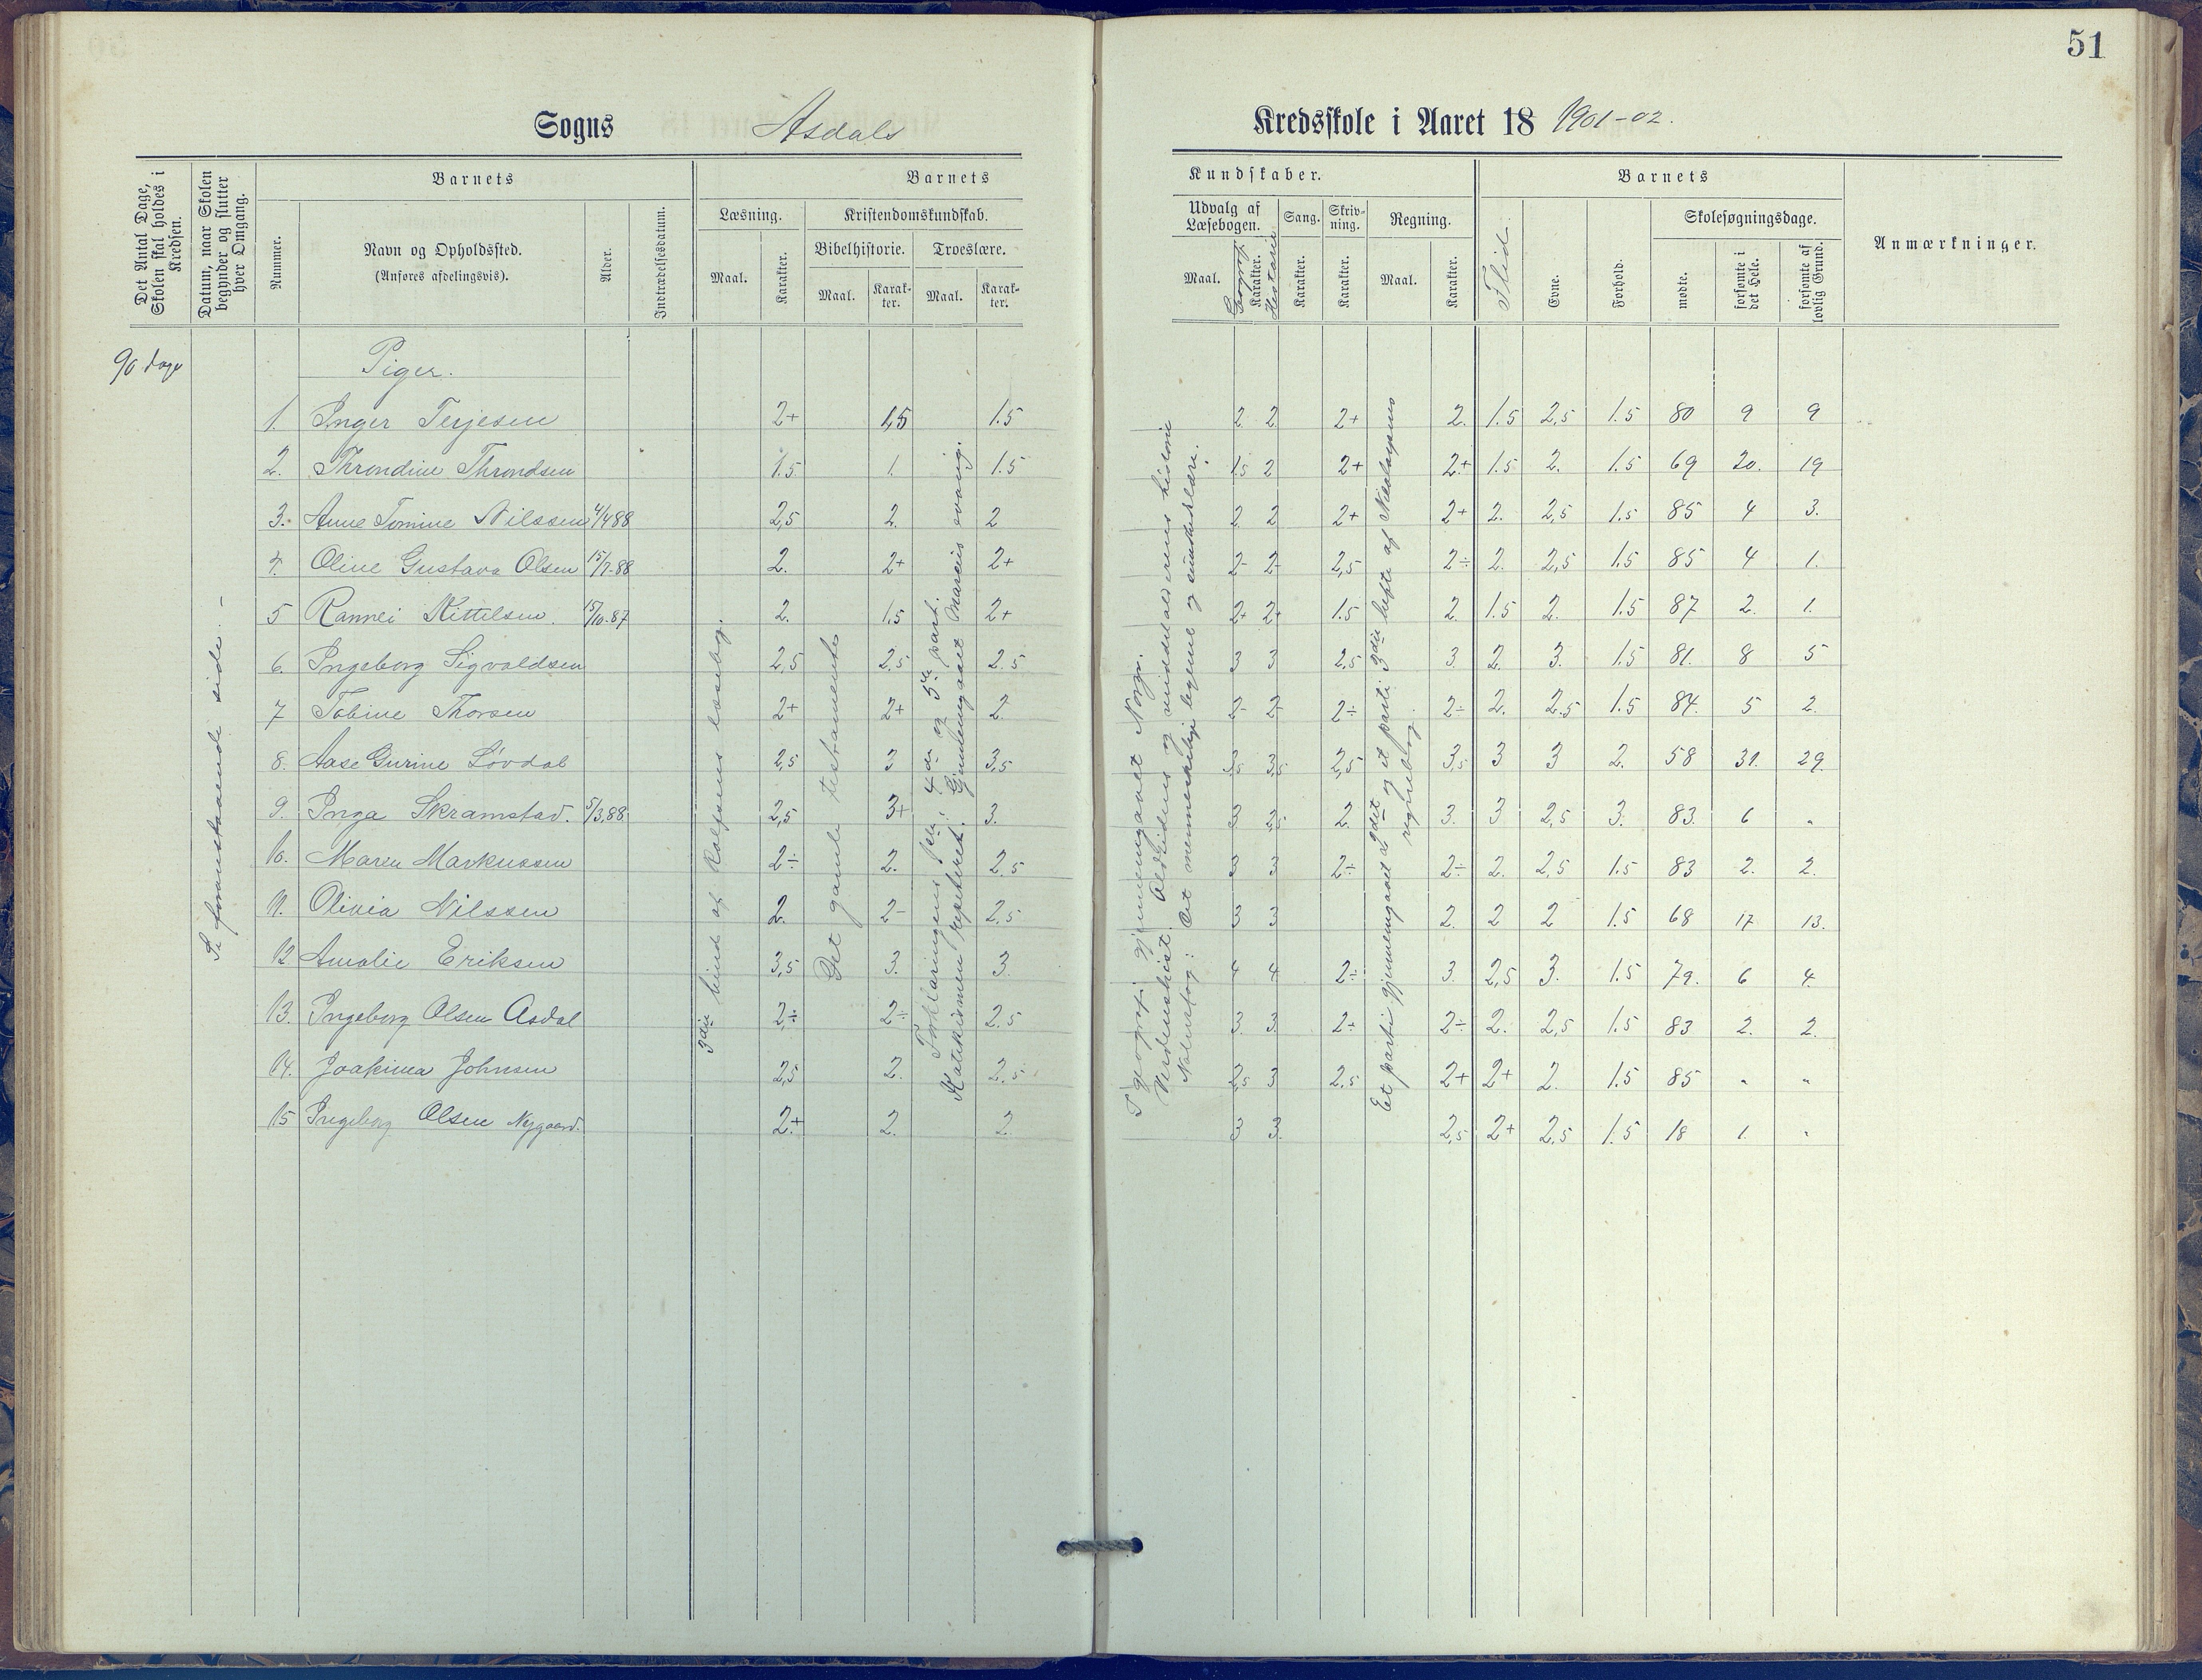 51
Sogns Asdals Kredsskole i Aaret 18 1901-02.
Det Antal Dage, Skolen skal holdes i Kredsen.
Datum, naar Skolen begynder og slutter hver Omgang.
Barnets
Nummer.
Navn og Opholdssted.
(Anføres afdelingsvis).
Alder.
Indtrædelsesdatum.
Barnets
Læsning.
Maal.
Karakter.
Kristendomskundskab.
Bibelhistorie.
Maal.
Karakter.
Troeslære.
Maal.
Karakter.
Kundskaber.
Udvalg af Læsebogen.
Maal.
Geografi
Karakter.
Historie
Sang.
Karakter.
Skrivning.
Karakter.
Regning.
Maal.
Karakter.
Barnets
Flid.
Evne.
Forhold.
Skolesøgningsdage.
mødte.
forsømte i det Hele.
forsømte af lovlig Grund.
Anmærkninger.
90 dage
Se foranstaaende side. –
3die bind af Rolfsens læsebog.
Det gamle testamente
Forklaringens 4de og 5te part.
Katekismen repeteret. Gjennemgaaet Marcus evang.
I geografi gjennemgaaet Norge.
Verdenshist. Oldtidens og middelalderens historie
Naturfag: Det menneskelige legeme og sundhedslære.
Et parti gjennemgaaet af 2det og et parti 3die hefte af Nicolaysens regnebog.
Piger.
1. Inger Terjesen 2+ 1,5 1.5 2 2 2+ 2. 1.5 2,5 1.5 80 9 9
2. Throndine Throndsen 1.5 1. 1.5 1.5 2 2+ 2+ 1.5 2. 1.5 69 20. 19
3. Anne Tomine Nilssen 4/4 88 2,5 2. 2 2 2 2+ 2+ 2. 2,5 1.5 85 4 3.
4. Oline Gustava Olsen 15/7-88 2. 2+ 2+ 2- 2- 2,5 2÷ 2. 2,5 1.5 85 4 1.
5 Rannei Kittelsen. 15/10.87 2. 1.5 2+ 2+ 2+ 1.5 2. 1.5 2. 1.5 87 2. 1.
6. Ingeborg Sigvaldsen 2,5 2.5 2.5 3 3 2,5 3. 2. 3. 1.5 81. 8 5
7 Tobine Thorsen 2+ 2+ 2. 2- 2- 2÷ 2÷ 2. 2.5 1.5 84. 5 2.
8. Aase Gurine Løvdal 2,5 3 3,5 3,5 3,5 2,5 3,5 3 3 2. 58 31. 29.
9. Inga Skramstad. 5/3.88. 2,5 3+ 3. 3 3,5 2. 3. 3 2,5 3. 83. 6 "
10. Maren Markussen 2÷ 2. 2.5 3 3 2÷ 2÷ 2. 2,5 1.5 83 2. 2.
11. Olivia Nilssen 2. 2- 2.5 3 3 2. 2 2 1.5 68 17 13.
12 Amalie Eriksen 3,5 3. 3. 4 4 2÷ 3. 2,5 3. 1.5 79. 6 4.
13. Ingeborg Olsen Asdal 2÷ 2÷ 2.5 3. 3. 2÷ 2÷ 2. 2,5 1.5 83 2. 2.
14. Joakima Johnsen 2,5 2. 2.5 2,5 3 2,5 2+ 2+ 2. 1.5 85 " "
15 Ingeborg Olsen Nygaard. 2+ 2. 2. 3 3. 2,5 2+ 2,5 1.5 18 1. "